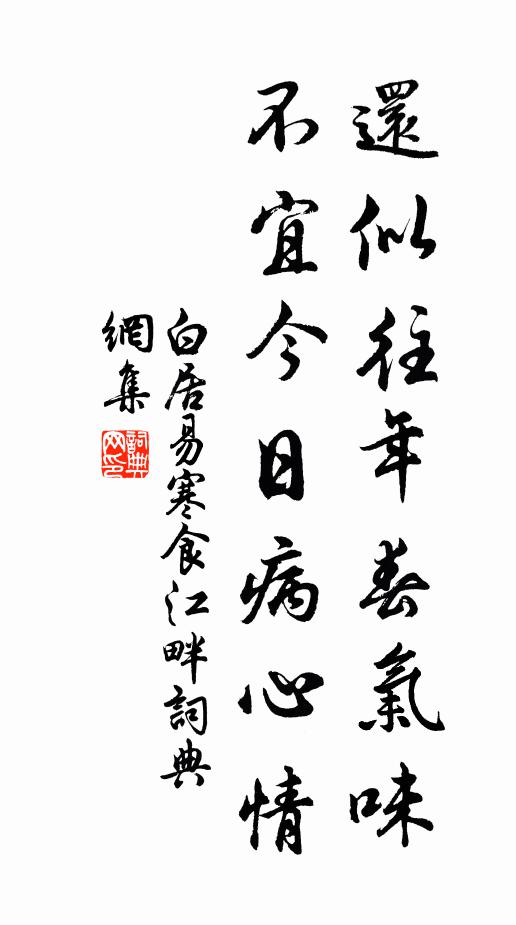 還似往年春氣味
不宜今日病心情
白居易寒食江畔詞典
網集
詞典
网印